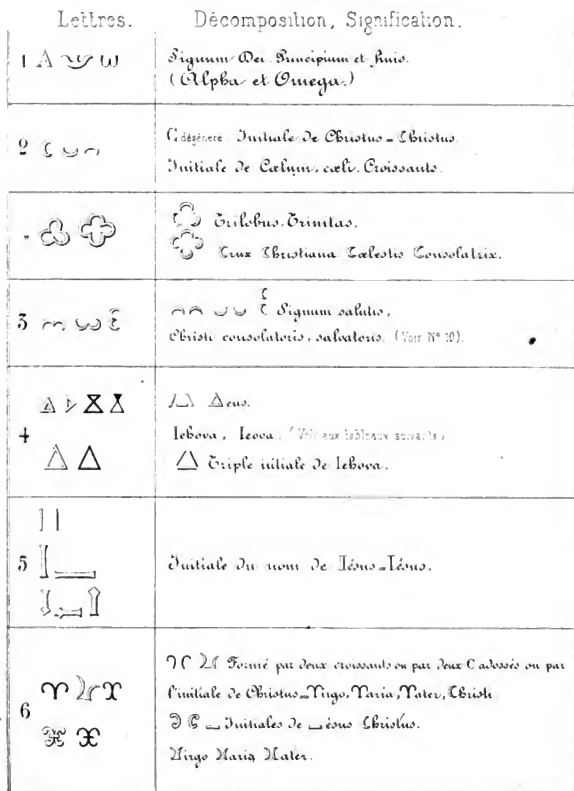 Lettres. Décomposition, Signification.
1 A ω Signum Dei Principium et finis.
(Alpha et Omega.)
2 C dégénéré. Initiale de Christus _ Christus
Initiale de Cœlum, cœli. Croissants.
Trilobus. Trinitas.
Crux Christiana Cœlestis Consolatrix.
3 Signum salutis,
Christi consolatoris, salvatoris. (Voir Nº 19).
4 Δeus.
Iehova, Ieova. (Voir aux tableaux suivants)
Triple initiale de Iehova.
5 Initiale du nom de Iésus _ Iésus.
6 Formé par deux croissants ou par deux C adossés ou par
l'initiale de Christus _ Virgo, Maria, Mater, Christi
Initiales de Jésus Christus.
Virgo Maria Mater.